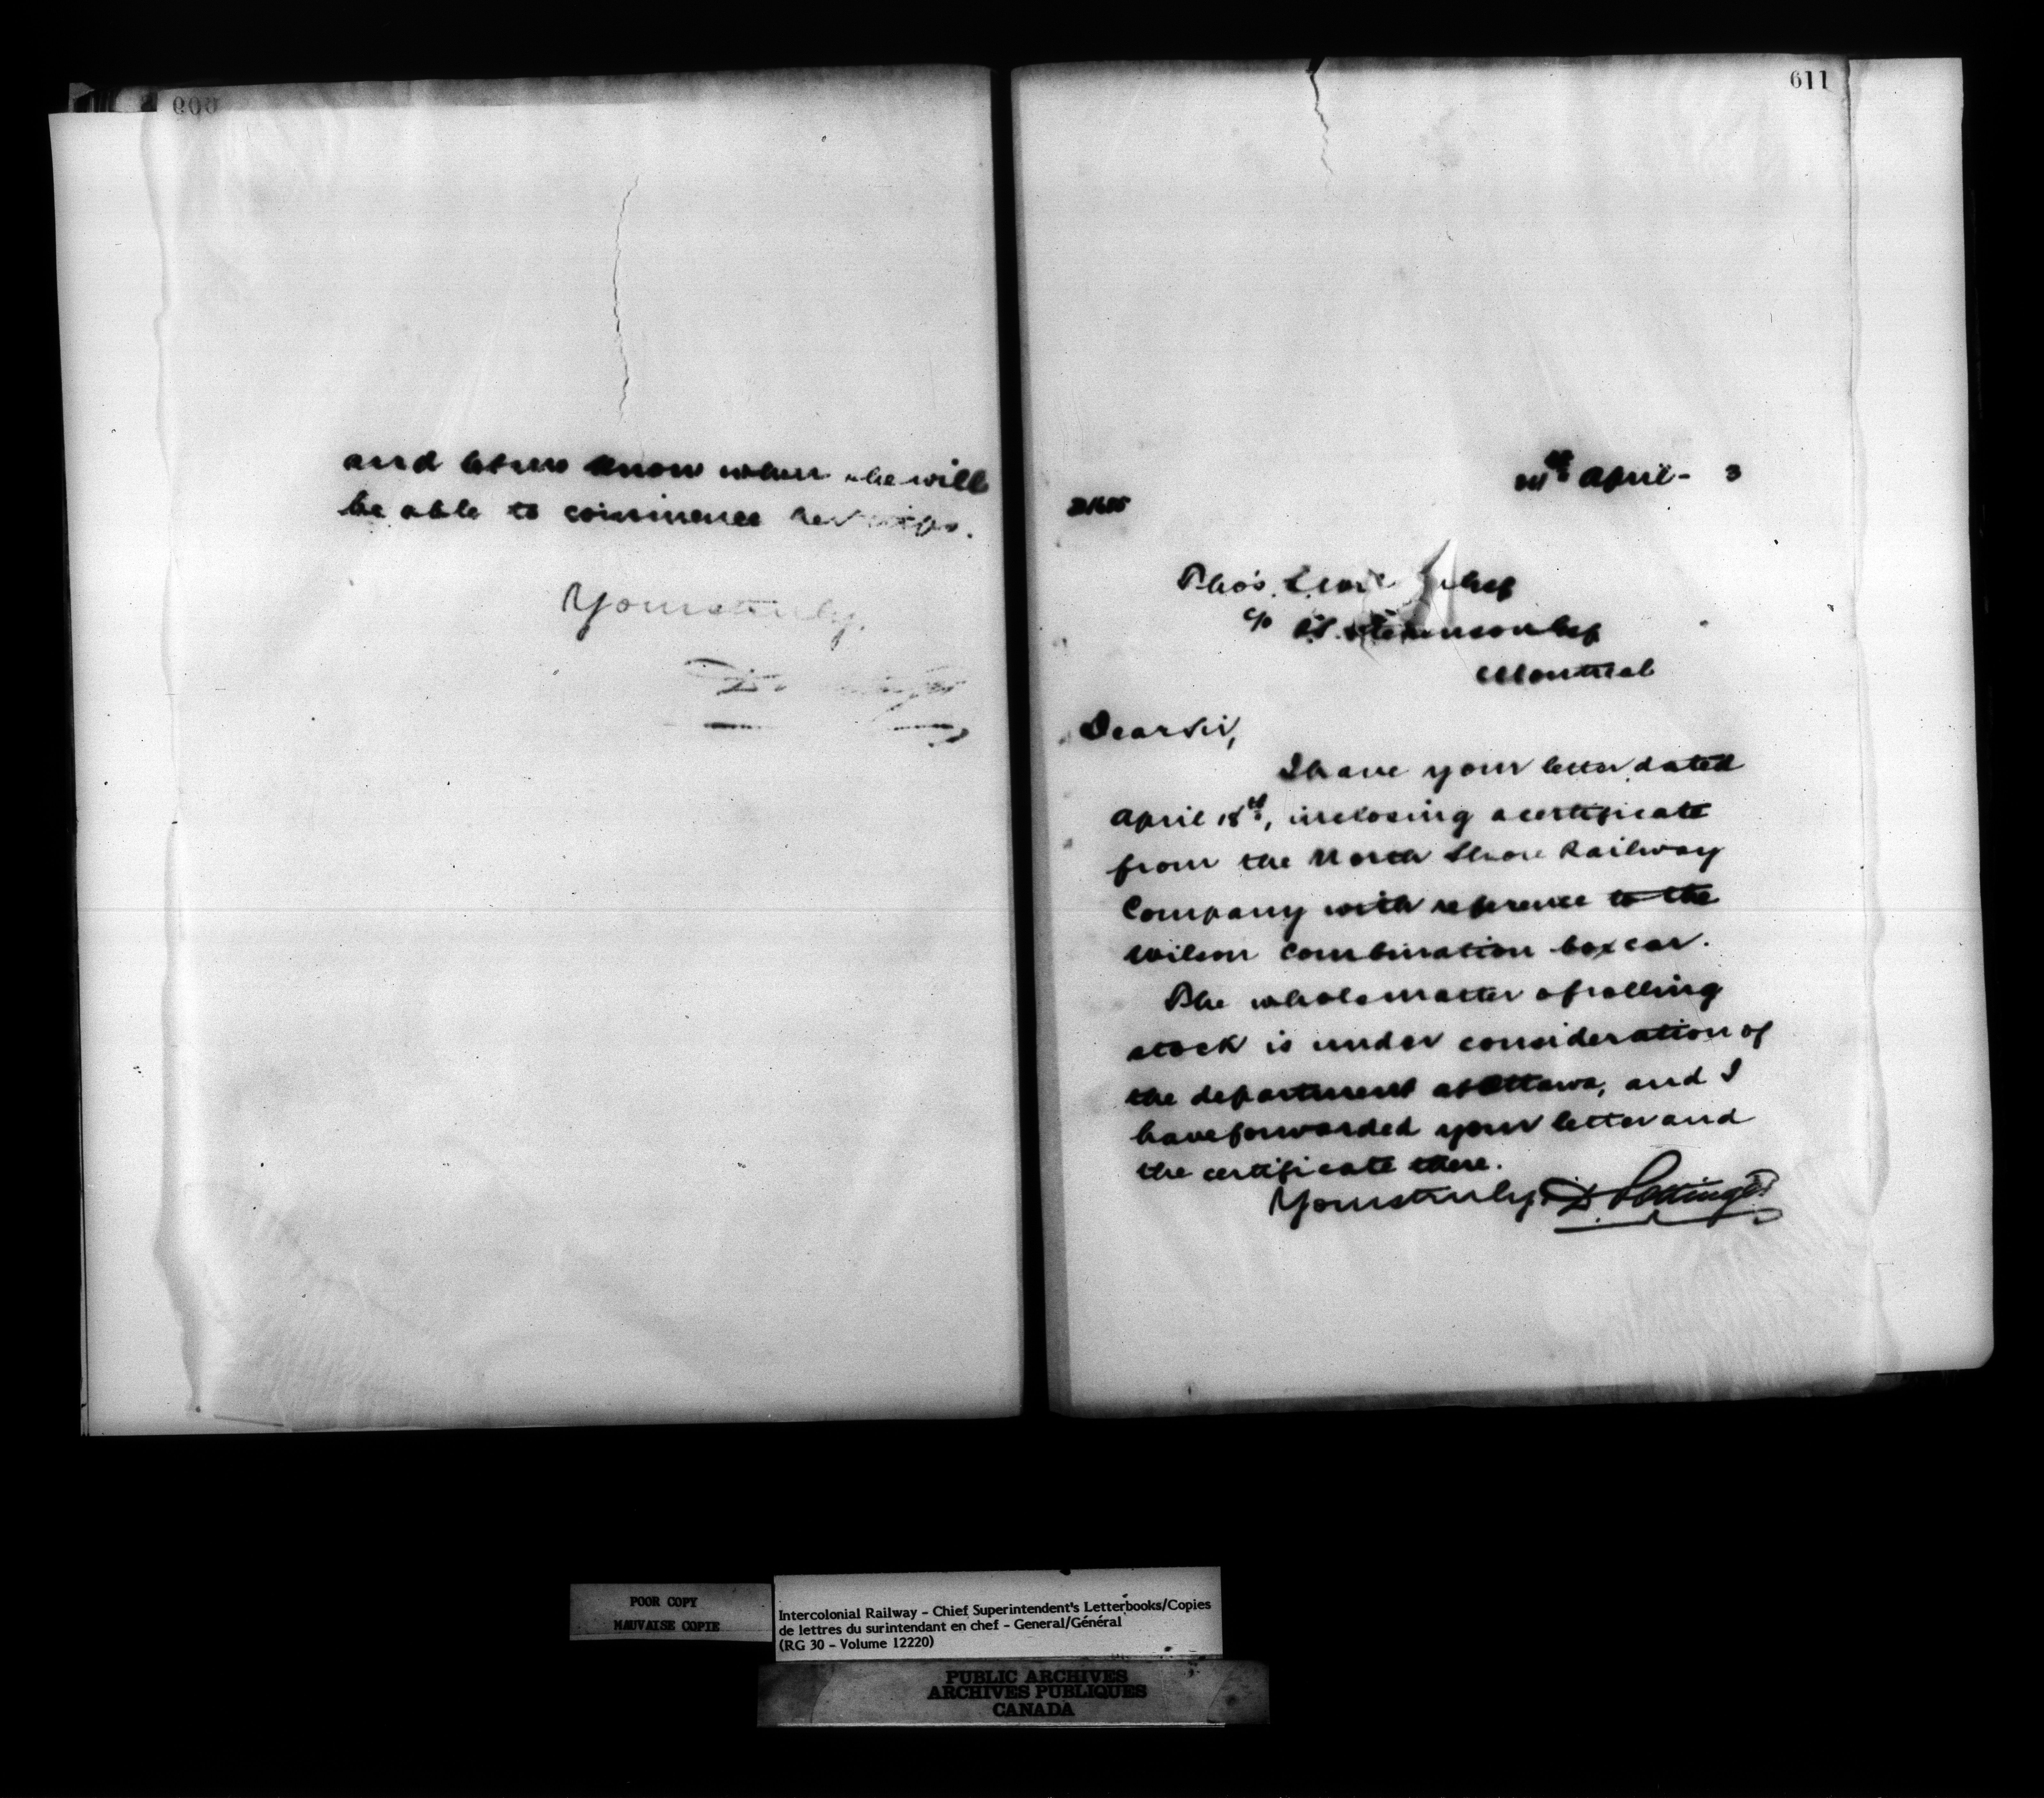 and let us know when she will
be able to commence her trips.
Yours truly,
D Pottinger
611
April - 3
Tho's. Esq
c/o Esq
Montreal
Dear Sir,
I have your letter dated
April 18th, inclosing a certificate
from the North Shore Railway
Company with reference to the
Wilson Combination box car.
The whole matter of rolling
stock is under consideration of
the department at Ottawa, and I
have forwarded your letter and
the certificate there.
Yours truly, D Pottinger
POOR COPY
MAUVAISE COPIE
Intercolonial Railway - Chief Superintendent's Letterbooks/Copies
de lettres du surintendant en chef - General/Général
(RG 30 - Volume 12220)
PUBLIC ARCHIVES
ARCHIVES PUBLIQUES
CANADA